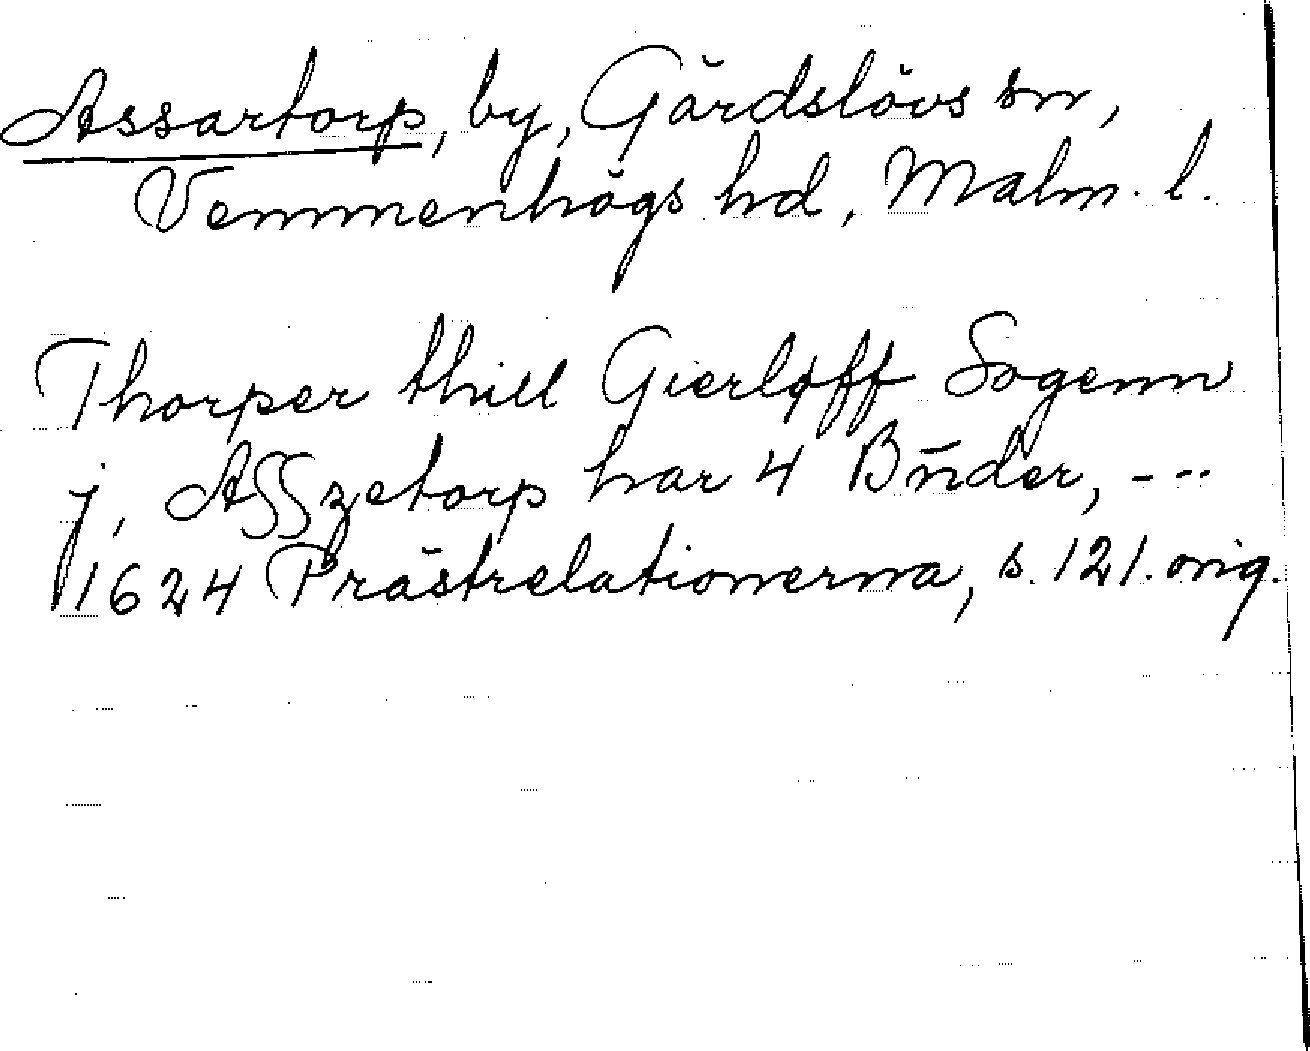 Assartorp, by, Gärdslövs sn,
Vemmenhögs hd, Malm. l.
Thorper thill Gierløff Sogenn
j, Aſſzetorp har 4 Bu̅der, ---
1624 Prästrelationerna, s. 121. orig.